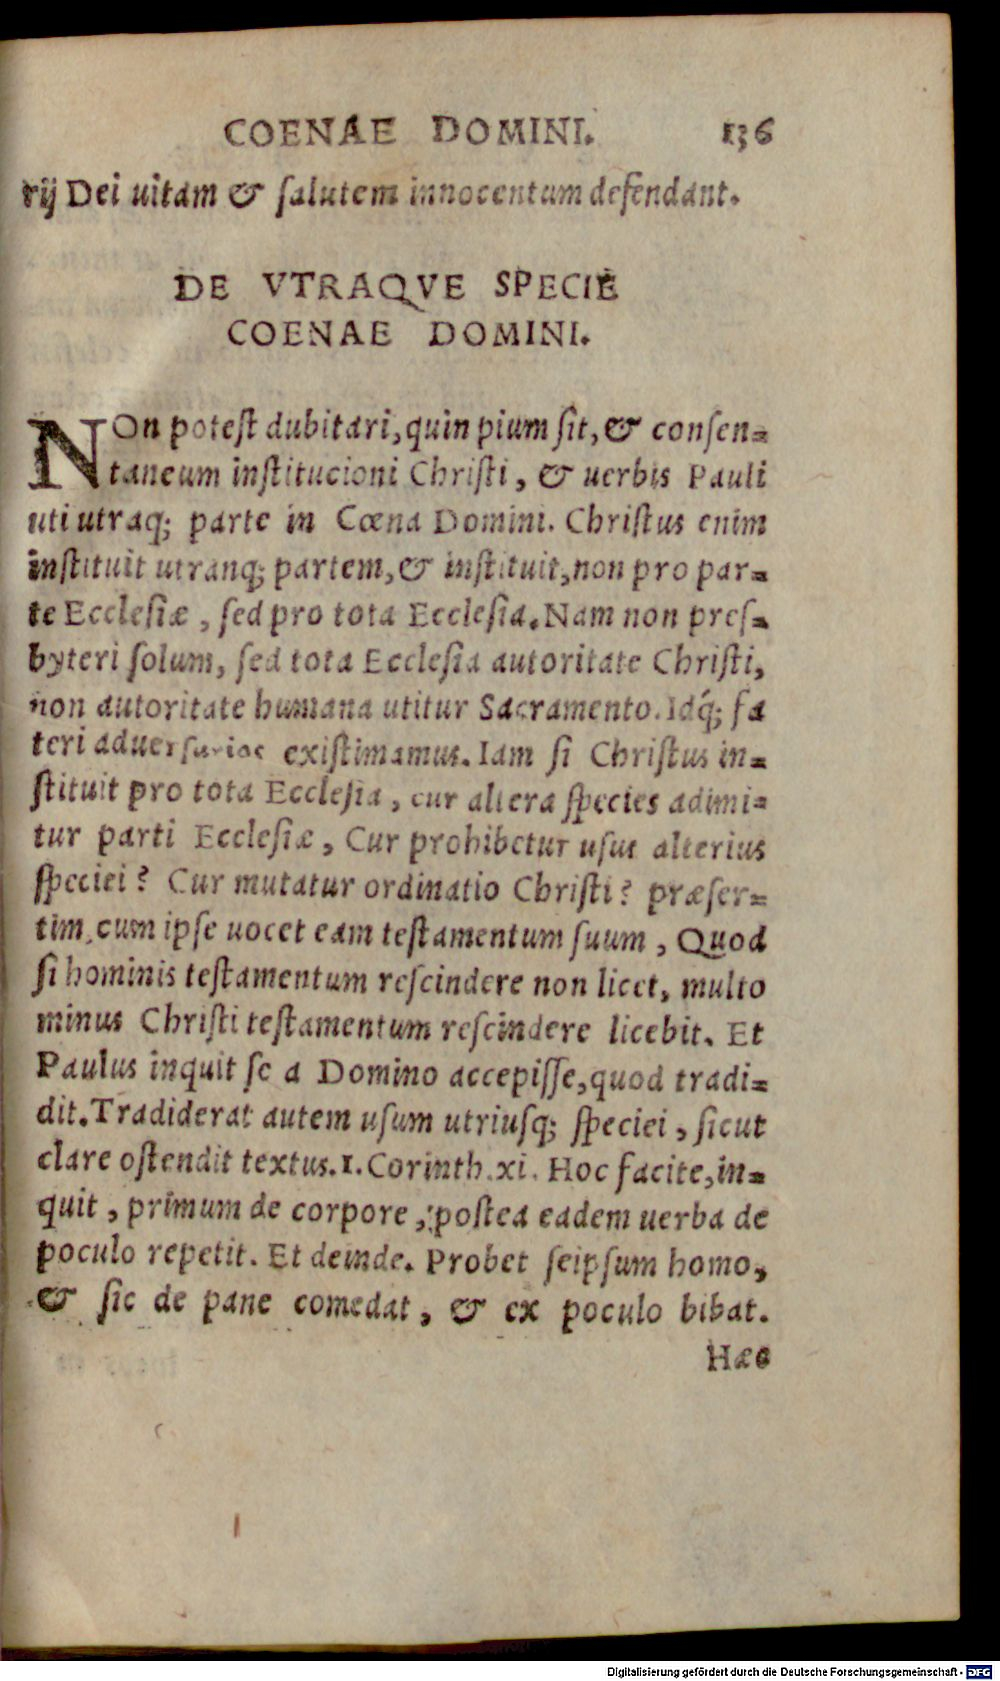 COENAE DOMINI. 136
rij Dei uitam & ſalutem innocentum defendant.
DE VTRAQVE SPECIE
COENAE DOMINI.
NOn poteſt dubitari, quin pium ſit, & conſen-
taneum inſtitucioni Chriſti, & uerbis Pauli
uti utraq; parte in Cœna Domini. Chriſtus enim
inſtituit utranq; partem, & inſtituit, non pro par-
te Eccleſiæ, ſed pro tota Eccleſia. Nam non preſ-
byteri ſolum, ſed tota Eccleſia autoritate Chriſti,
non autoritate humana utitur Sacramento. Idq́; fa
teri aduerſarios exiſtimamus. Iam ſi Chriſtus in-
ſtituit pro tota Eccleſia, cur altera ſpecies adimi-
tur parti Eccleſiæ, Cur prohibetur uſus alterius
ſpeciei? Cur mutatur ordinatio Chriſti? præſer-
tim, cum ipſe uocet eam teſtamentum ſuum, Quod
ſi hominis teſtamentum reſcindere non licet, multo
minus Chriſti teſtamentum reſcindere licebit. Et
Paulus inquit ſe a Domino accepiſſe, quod tradi-
dit. Tradiderat autem uſum utriuſq; ſpeciei, ſicut
clare oſtendit textus. 1. Corinth. xi. Hoc facite, in-
quit, primum de corpore, poſtea eadem uerba de
poculo repetit. Et deinde. Probet ſeipſum homo,
& ſic de pane comedat, & ex poculo bibat.
Hæc
Digitalisierung gefördert durch die Deutsche Forschungsgemeinschaft - DFG